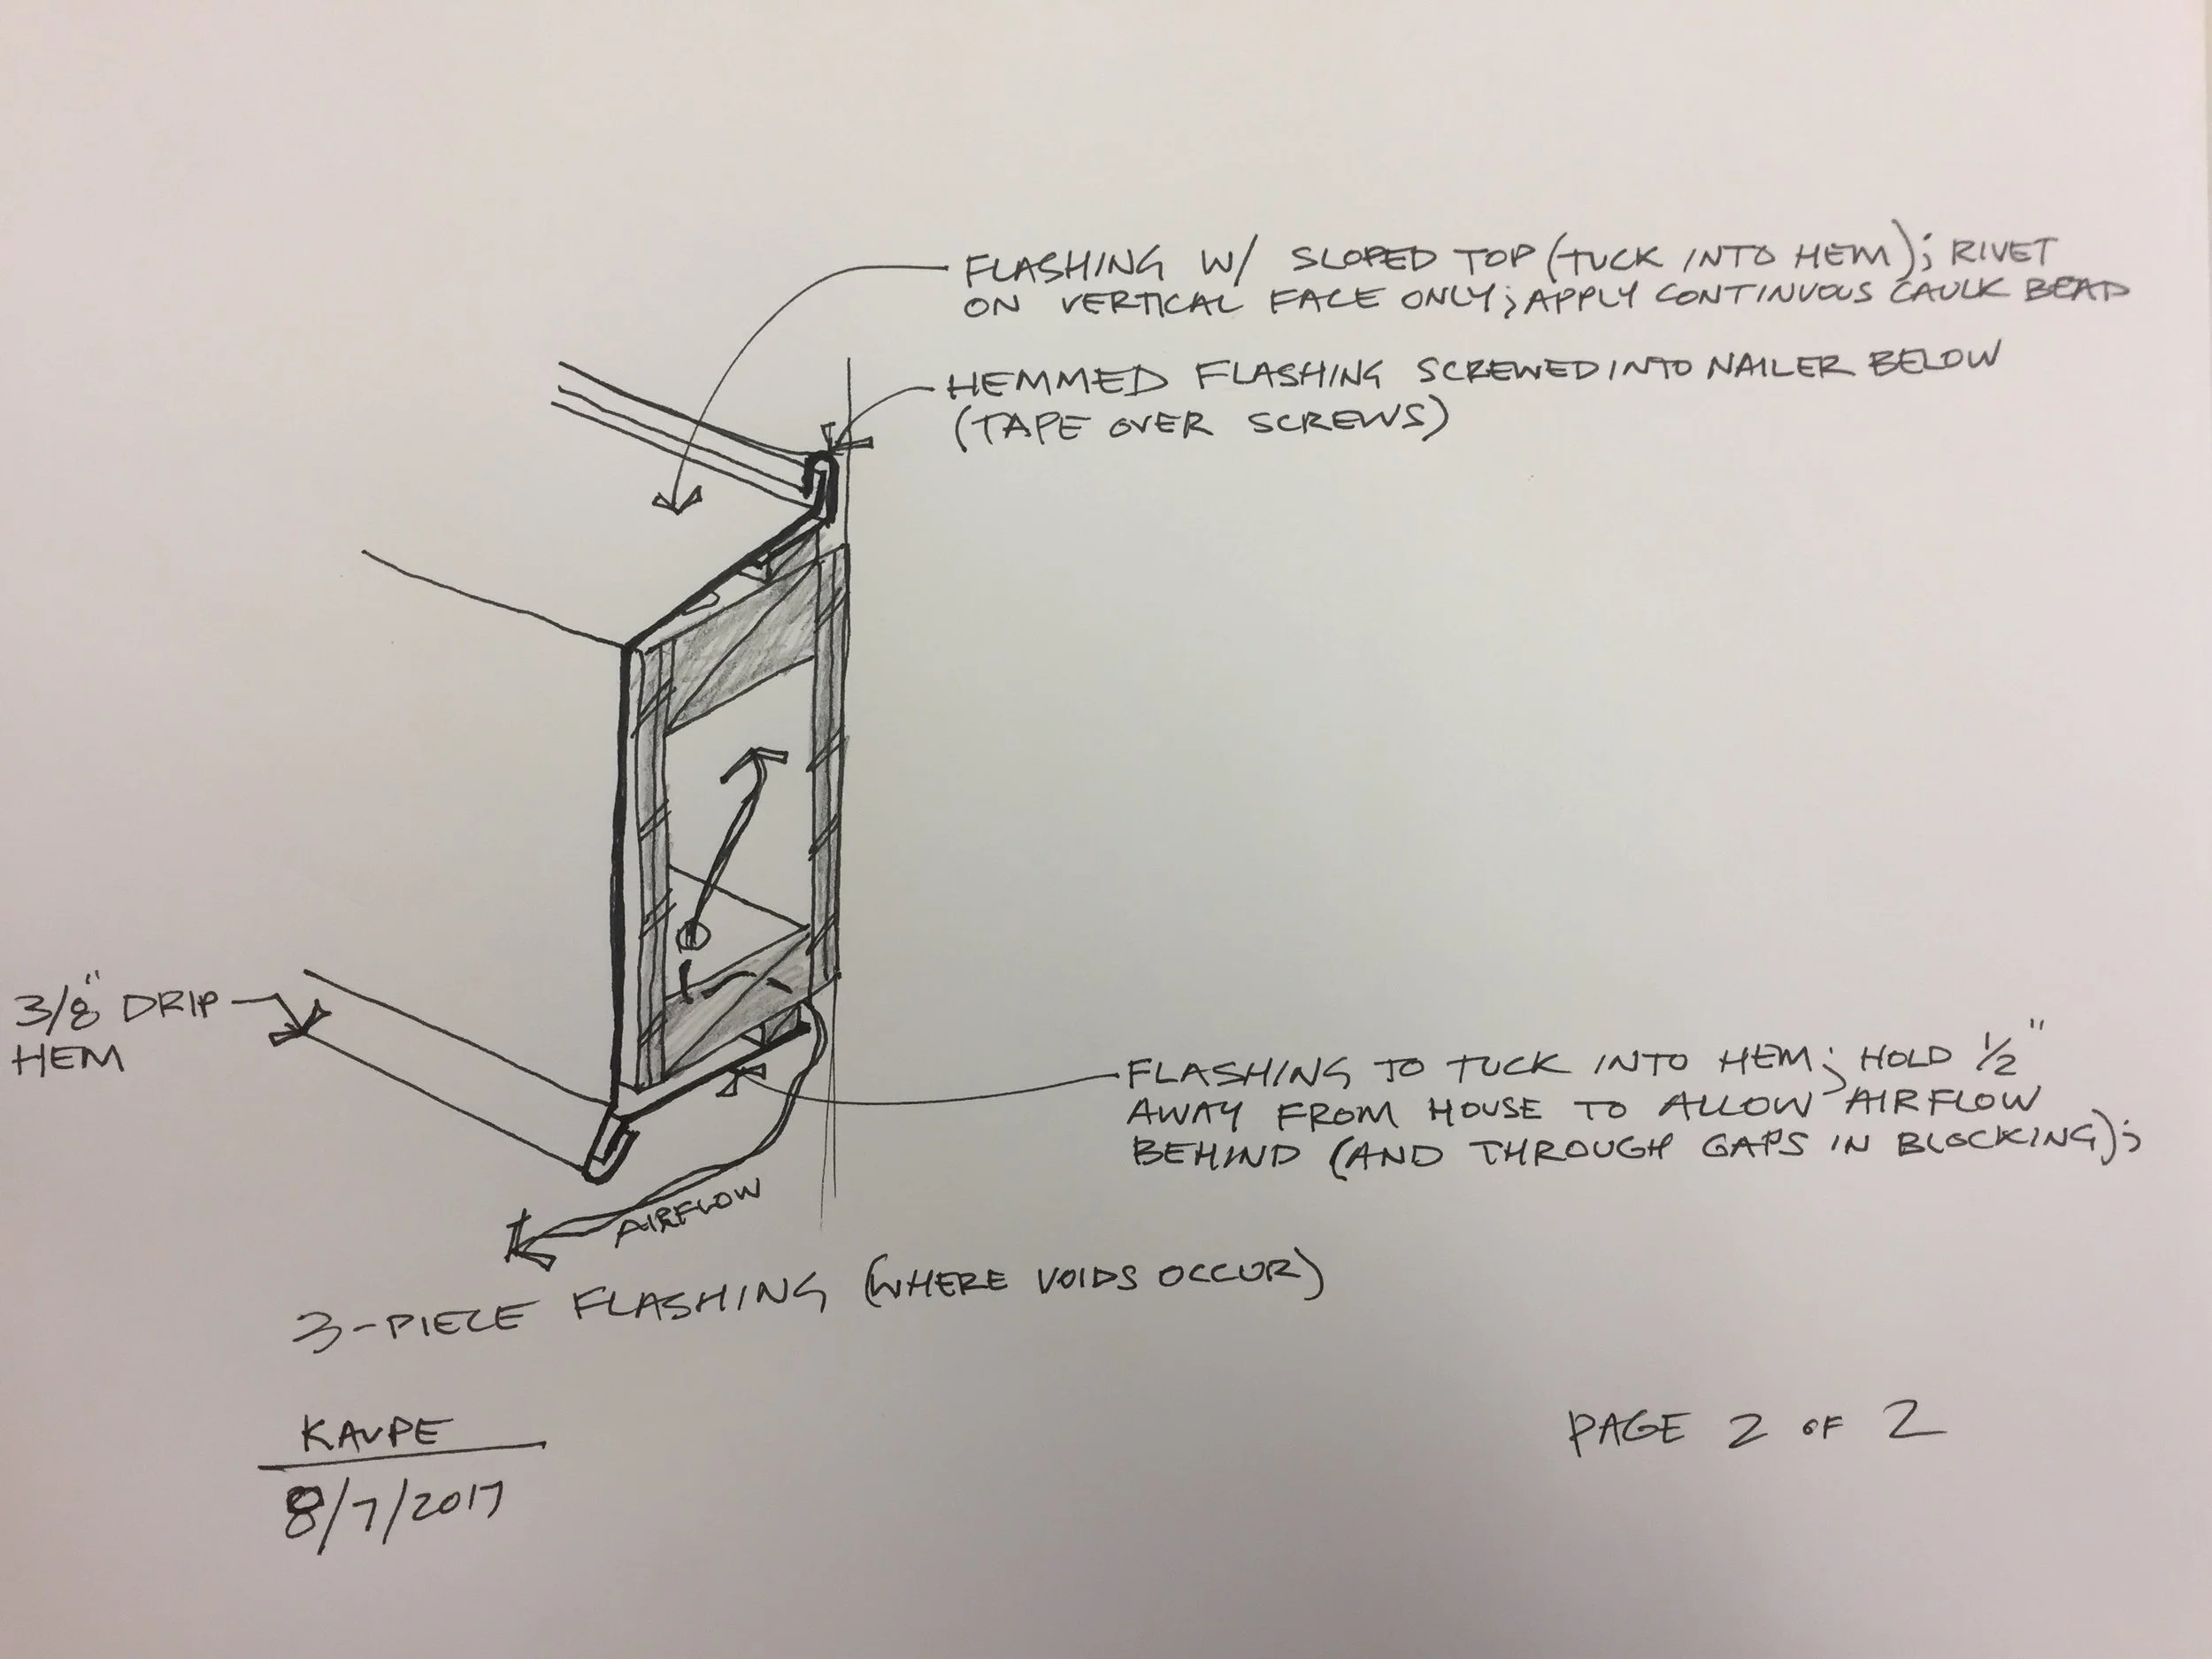 FLASHING W/ SLOPED TOP (TUCK INTO HEM); RIVET
ON VERTICAL FACE ONLY; APPLY CONTINUOUS CAULK BEAD
HEMMED FLASHING SCREWED INTO NAILER BELOW
(TAPE OVER SCREWS)
3/8" DRIP
HEM
FLASHING TO TUCK INTO HEM; HOLD 1/2"
AWAY FROM HOUSE TO ALLOW AIRFLOW
BEHIND (AND THROUGH GAPS IN BLOCKING);
AIRFLOW
3-PIECE FLASHING (WHERE VOIDS OCCUR)
KAUPE
8/7/2017
PAGE 2 OF 2